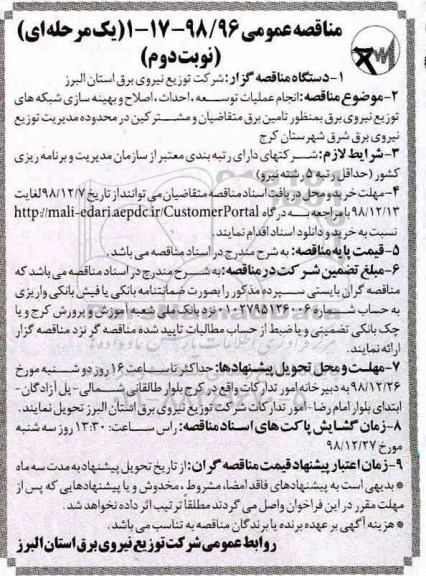 مناقصه عمومی ۹۸/۹۶-۱۷-۱(یک مرحله‌ای)
(نوبت دوم)
۱-دستگاه مناقصه گزار: شرکت توزیع نیروی برق استان البرز
۲-موضوع مناقصه: انجام عملیات توسعه، احداث، اصلاح و بهینه سازی شبکه های
توزیع نیروی برق بمنظور تامین برق متقاضیان و مشترکین در محدوده مدیریت توزیع
نیروی برق شرق شهرستان کرج
۳-شرایط لازم: شرکتهای دارای رتبه بندی معتبر از سازمان مدیریت و برنامه ریزی
کشور (حداقل رتبه ۵ رشته نیرو)
۴-مهلت خرید و محل دریافت اسناد مناقصه متقاضیان می توانند از تاریخ ۹۸/۱۲/۷ لغایت
۹۸/۱۲/۱۳ با مراجعه به درگاه http://mali-edari.aepdc.ir/CustomerPortal
نسبت به خرید و دانلود اسناد اقدام نمایند.
۵-قیمت پایه مناقصه: به شرح مندرج در اسناد مناقصه می باشد.
۶-مبلغ تضمین شرکت در مناقصه: به شرح مندرج در اسناد مناقصه می باشد که
مناقصه گران بایستی سپرده مذکور را بصورت ضمانتنامه بانکی یا فیش بانکی واریزی
به حساب شماره ۰۱۰۲۷۹۵۱۳۶۰۰۶ نزد بانک ملی شعبه آموزش و پرورش کرج و یا
چک بانکی تضمینی و یا ضبط از حساب مطالبات تایید شده مناقصه گر نزد مناقصه گزار
ارائه نمایند.
۷-مهلت و محل تحویل پیشنهادها: حداکثر تا ساعت ۱۶ روز دوشنبه مورخ
۹۸/۱۲/۲۶ به دبیرخانه امور تدارکات واقع در کرج بلوار طالقانی شمالی-پل آزادگان-
ابتدای بلوار امام رضا-امور تدارکات شرکت توزیع نیروی برق استان البرز تحویل نمایند.
۸-زمان گشایش پاکت های اسناد مناقصه: راس ساعت: ۱۳:۳۰ روز سه شنبه
مورخ ۹۸/۱۲/۲۷
۹-زمان اعتبار پیشنهاد قیمت مناقصه گران: از تاریخ تحویل پیشنهاد به مدت سه ماه
* بدیهی است به پیشنهادهای فاقد امضا، مشروط، مخدوش و یا پیشنهادهایی که پس از
مهلت مقرر در این فراخوان واصل می گردند مطلقا ترتیب اثر داده نخواهد شد.
* هزینه آگهی بر عهده برنده یا برندگان مناقصه به تناسب می باشد.
روابط عمومی شرکت توزیع نیروی برق استان البرز